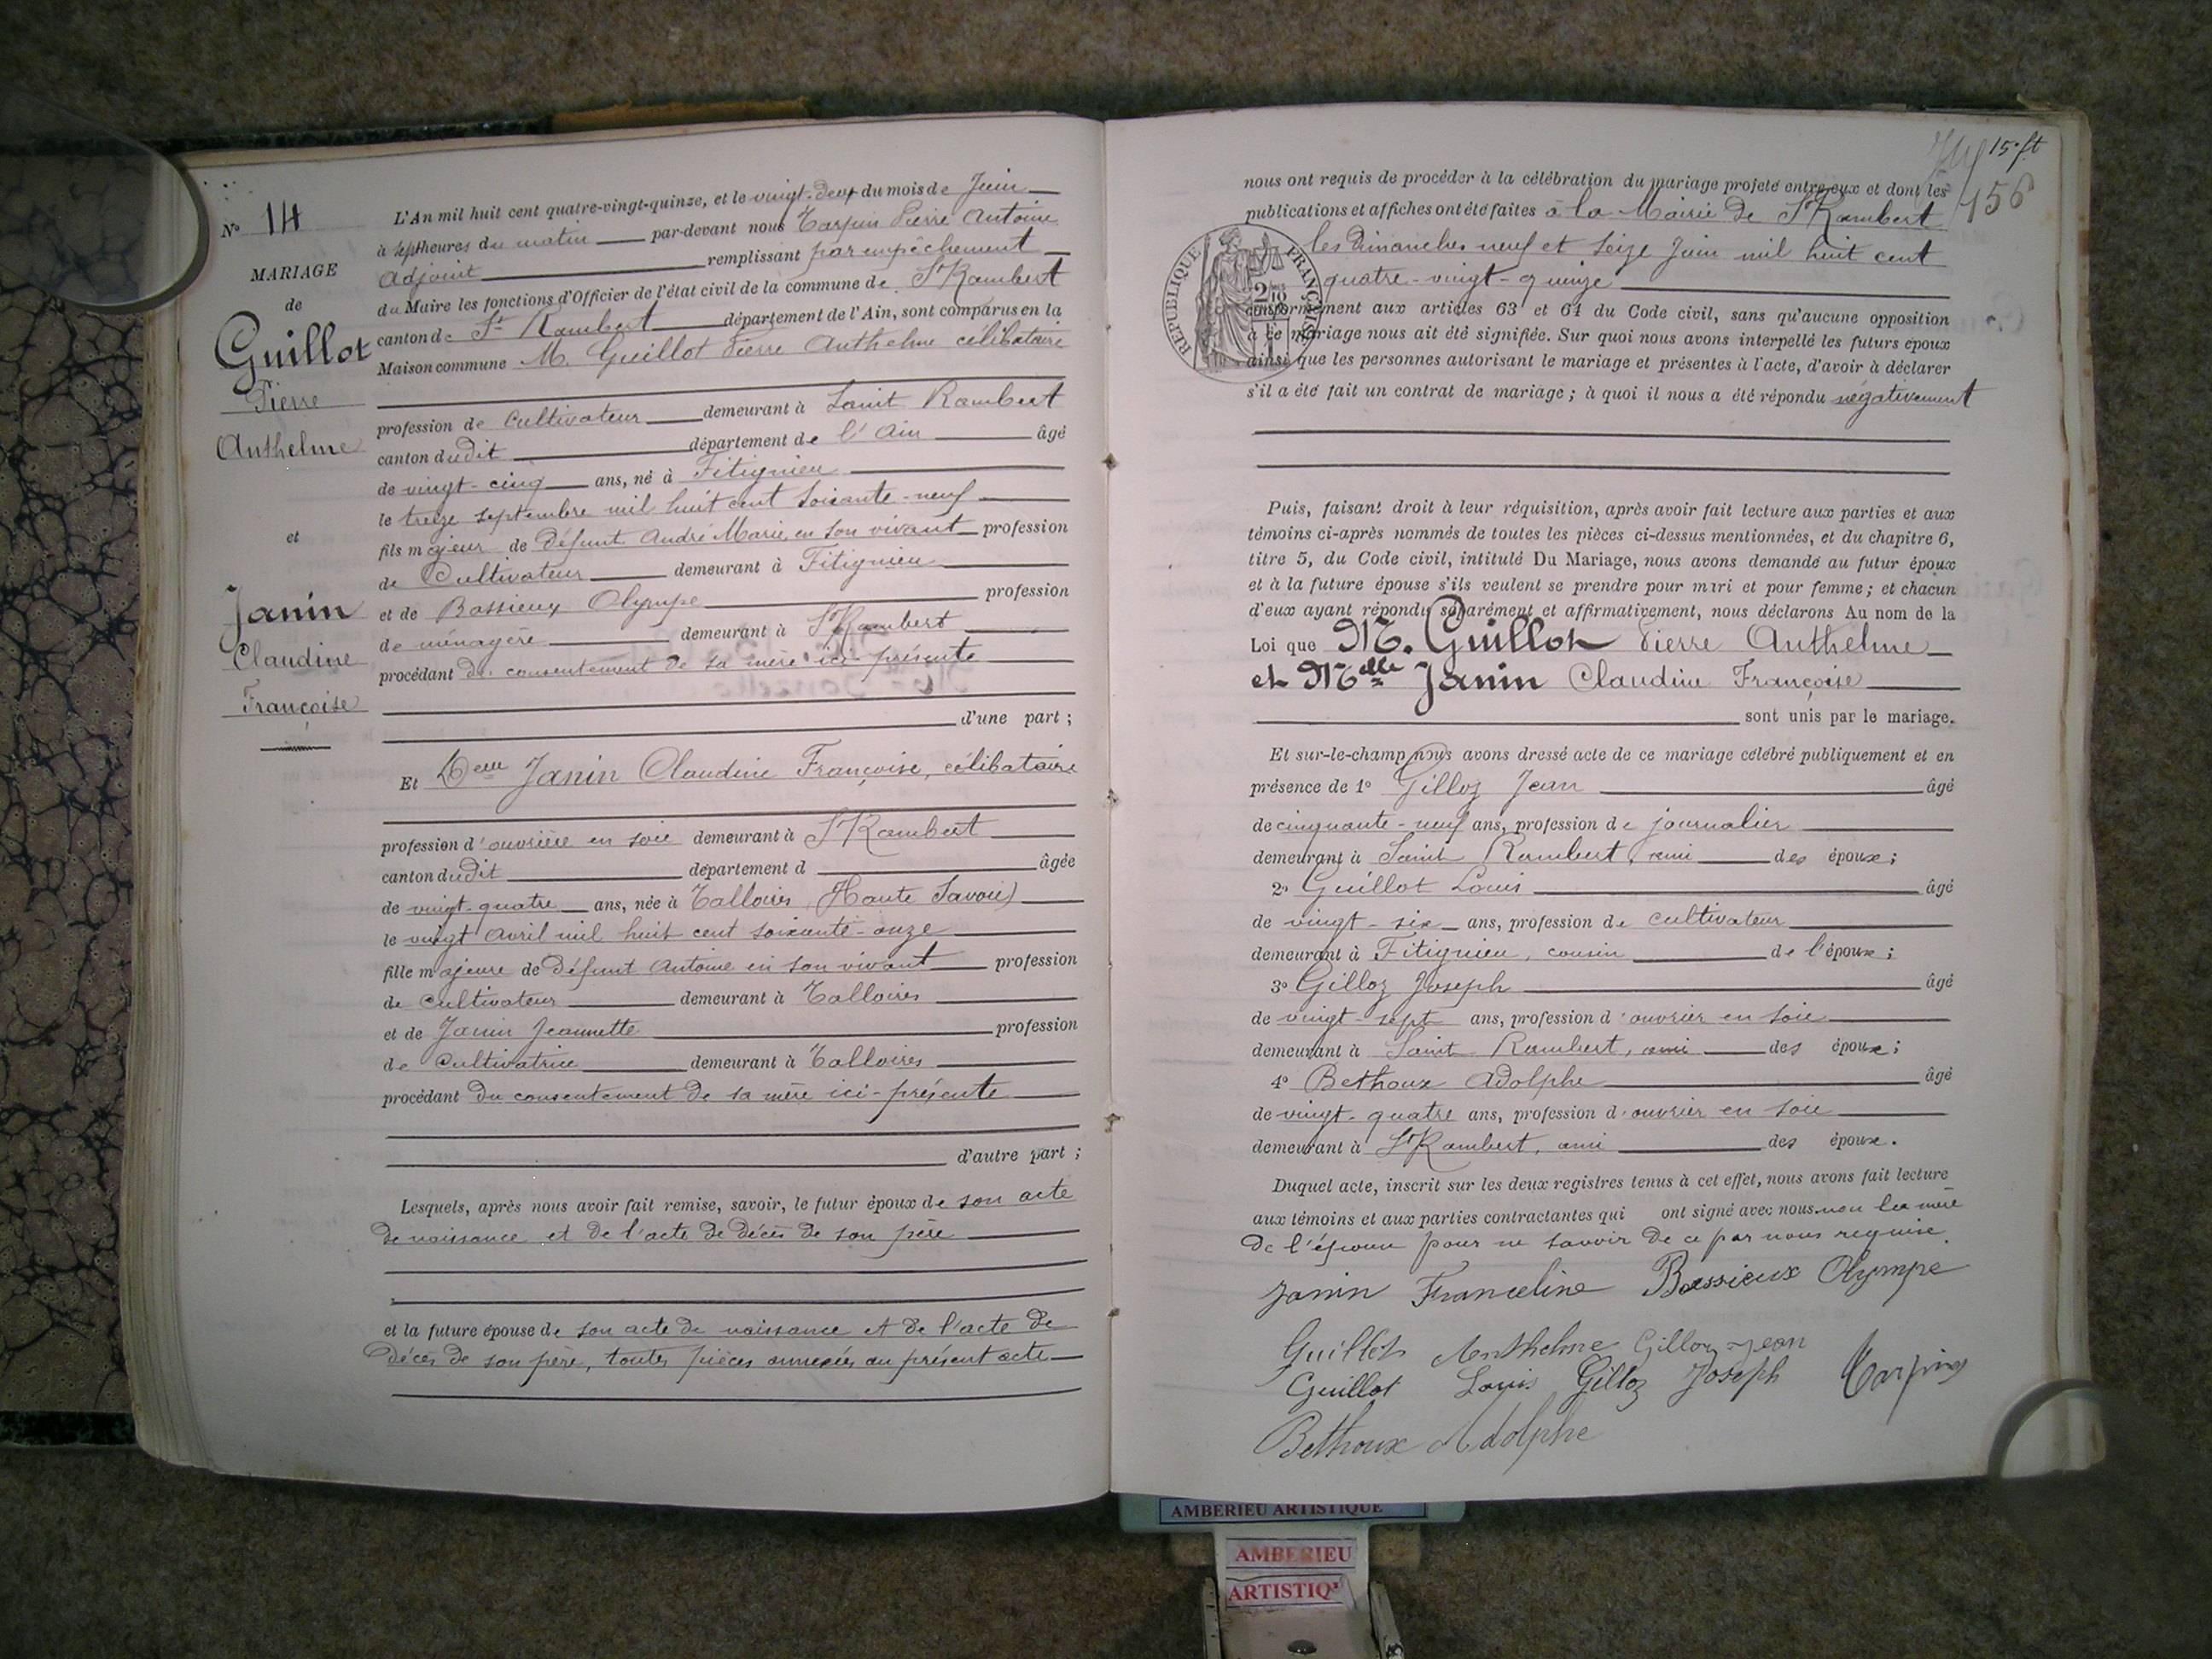 N° 14
MARIAGE
de
Guillot
Pierre
Anthelme
et
Janin
Claudine
Françoise
L'An mil huit cent quatre-vingt-quinze, et le vingt-deux du mois de Juin
à sept heures du matin par-devant nous Tarpin Pierre Antoine
adjoint remplissant par empêchement
du Maire les fonctions d'Officier de l'état civil de la commune de St Rambert
canton de St Rambert département de l'Ain, sont comparus en la
Maison commune M. Guillot Pierre Anthelme célibataire
profession de cultivateur demeurant à Saint Rambert
canton dudit département de l'Ain âgé
de vingt-cinq ans, né à Fitignieu
le treize septembre mil huit cent soixante-neuf
fils majeur de défunt André Marie, en son vivant profession
de Cultivateur demeurant à Fitignieu
et de Bassieux Olympe profession
de ménagère demeurant à St Rambert
procédant du consentement de sa mère ici-présente
d'une part ;
Et Delle Janin Claudine Françoise, célibataire
profession d'ouvrière en soie demeurant à St Rambert
canton dudit département d âgée
de vingt-quatre ans, née à Talloires (Haute Savoie)
le vingt avril mil huit cent soixante-onze
fille majeure de défunt Antoine en son vivant profession
de cultivateur demeurant à Talloires
et de Janin Jeannette profession
de cultivatrice demeurant à Talloires
procédant du consentement de sa mère ici-présente
d'autre part ;
Lesquels, après nous avoir fait remise, savoir, le futur époux de son acte
de naissance et de l'acte de décès de son père
et la future épouse de son acte de naissance et de l'acte de
décès de son père, toutes pièces annexées au présent acte
15 ft
156
nous ont requis de procéder à la célébration du mariage projeté entre eux et dont les
publications et affiches ont été faites à la Mairie de St Rambert
les dimanches neuf et seize Juin mil huit cent
quatre-vingt-quinze
RÉPUBLIQUE FRANÇAISE
2/10
conformément aux articles 63 et 64 du Code civil, sans qu'aucune opposition
à ce mariage nous ait été signifiée. Sur quoi nous avons interpellé les futurs époux
ainsi que les personnes autorisant le mariage et présentes à l'acte, d'avoir à déclarer
s'il a été fait un contrat de mariage ; à quoi il nous a été répondu négativement
Puis, faisant droit à leur réquisition, après avoir fait lecture aux parties et aux
témoins ci-après nommés de toutes les pièces ci-dessus mentionnées, et du chapitre 6,
titre 5, du Code civil, intitulé Du Mariage, nous avons demandé au futur époux
et à la future épouse s'ils veulent se prendre pour mari et pour femme ; et chacun
d'eux ayant répondu séparément et affirmativement, nous déclarons Au nom de la
Loi que M. Guillot Pierre Anthelme
et Melle Janin Claudine Françoise
sont unis par le mariage.
Et sur-le-champ nous avons dressé acte de ce mariage célébré publiquement et en
présence de 1° Gilloz Jean âgé
de cinquante-neuf ans, profession de journalier
demeurant à Saint Rambert, ami des époux ;
2° Guillot Louis âgé
de vingt-six ans, profession de cultivateur
demeurant à Fitignieu, cousin de l'époux ;
3° Gilloz Joseph âgé
de vingt-sept ans, profession d'ouvrier en soie
demeurant à Saint Rambert, ami des époux ;
4° Bethoux Adolphe âgé
de vingt-quatre ans, profession d'ouvrier en soie
demeurant à St Rambert, ami des époux.
Duquel acte, inscrit sur les deux registres tenus à cet effet, nous avons fait lecture
aux témoins et aux parties contractantes qui ont signé avec nous non la mère
de l'épouse pour ne savoir de ce par nous requise.
Janin Franceline Bassieux Olympe
Guillot Anthelme Gilloz Jean
Guillot Louis Gilloz Joseph Tarpin
Bethoux Adolphe
AMBERIEU ARTISTIQUE
AMBERIEU
ARTISTIQ